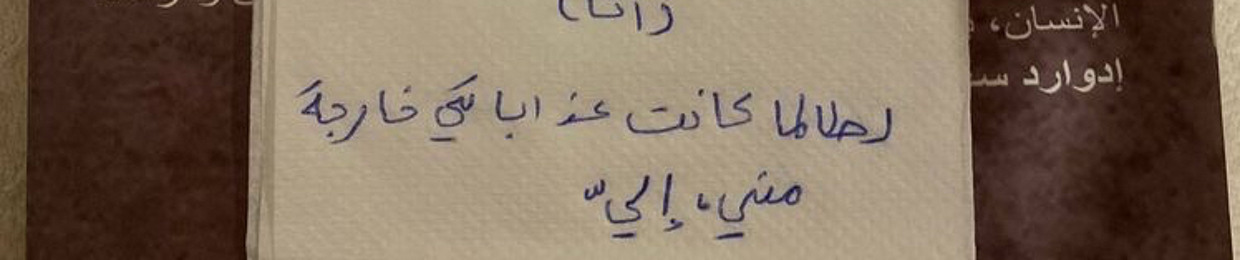 (أنا)
لطالما كانت عذاباتي خارجة
مني، إليّ
الإنسان،
إدوارد